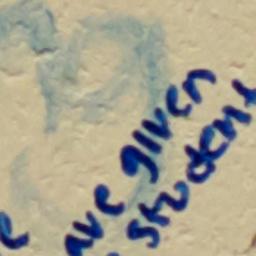 ave given
student